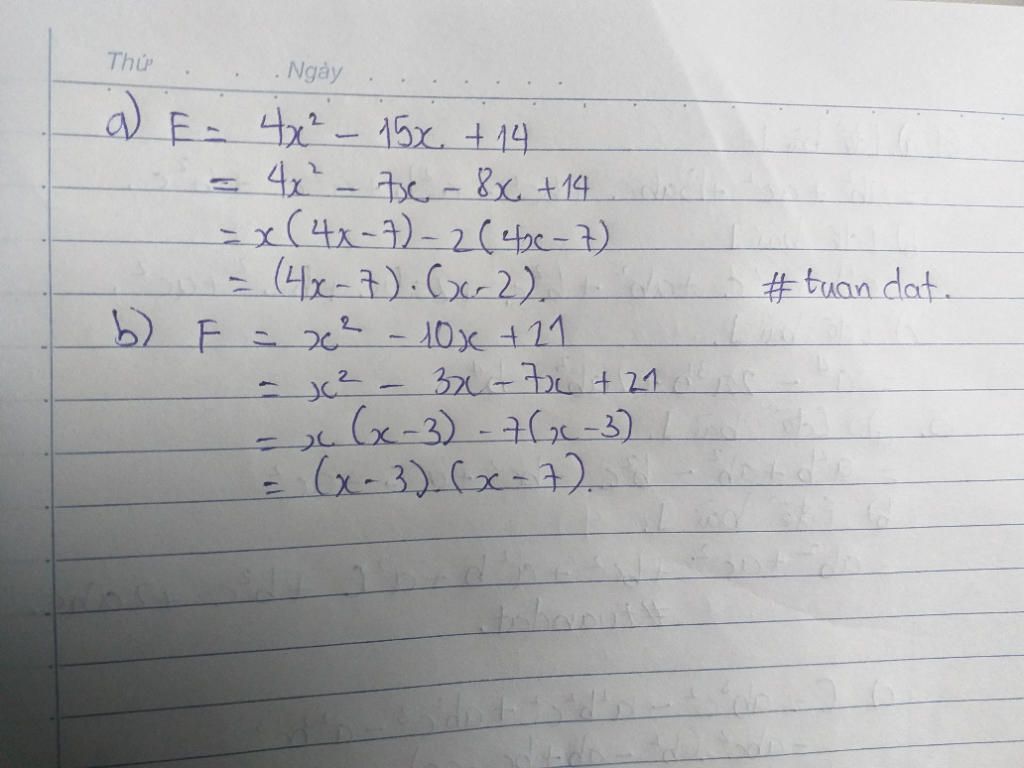 Thứ . . . Ngày . . . . . . .
a) E = 4x² - 15x + 14
= 4x² - 7x - 8x + 14
= x(4x-7) - 2(4x-7)
= (4x-7).(x-2).
# tuan dat.
b) F = x² - 10x + 21
= x² - 3x - 7x + 21
= x(x-3) - 7(x-3)
= (x-3).(x-7).